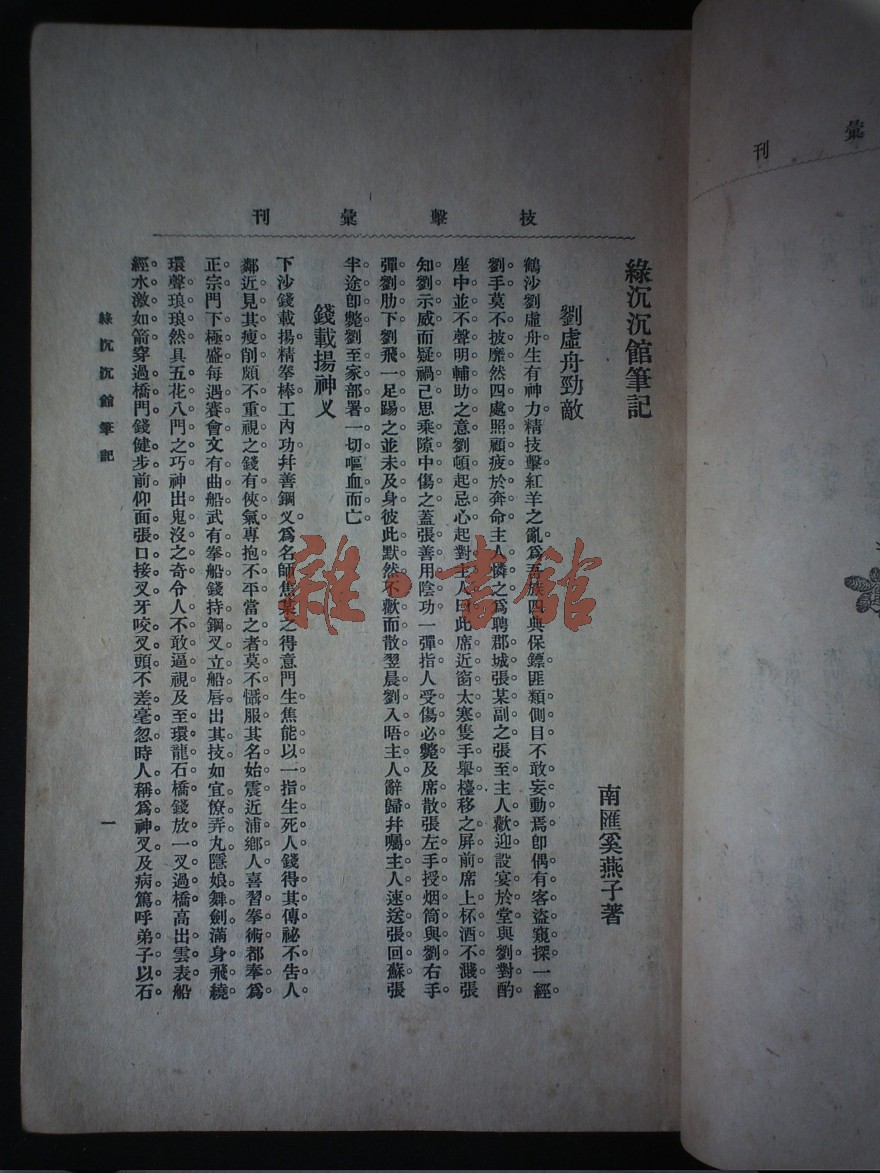 技擊彙刊
綠沉沉館筆記
南匯奚燕子著
劉虛舟勁敵
鶴沙劉虛舟生有神力精技擊紅羊之亂爲吾族四典保鏢匪類側目不敢妄動焉卽偶有客盜窺探一經。
劉手莫不披靡然四處照顧疲於奔命主人憐之爲聘郡城張某副之張至主人歡迎設宴於堂與劉對酌。
座中並不聲明輔助之意劉頓起忌心起對主人曰此席近窗太寒隻手舉檯移之屏前席上杯酒不濺張
知劉示威而疑禍己思乘隙中傷之蓋張善用陰功一彈指人受傷必斃及席散張左手授烟筒與劉右手
彈劉肋下劉飛一足踢之並未及身彼此默然不歡而散翌晨劉入晤主人辭歸幷囑主人速送張回蘇張
半途卽斃劉至家部署一切嘔血而亡。
錢載揚神义
下沙錢載揚精拳棒工內功幷善鋼义爲名師焦某之得意門生焦能以一指生死人錢得其傳祕不告人
鄰近見其瘦削頗不重視之錢有俠氣專抱不平當之者莫不慴服其名始震近浦鄉人喜習拳術都奉爲
正宗門下極盛每遇賽會文有曲船武有拳船錢持鋼叉立船唇出其技如宜僚弄丸隱娘舞劍滿身飛繞
環聲琅琅然具五花八門之巧神出鬼沒之奇令人不敢逼視及至環龍石橋錢放一叉過橋高出雲表船
經水激如箭穿過橋門錢健步前仰面張口接叉牙咬叉頭不差毫忽時人稱爲神叉及病篤呼弟子以石
綠沉沉館筆記
一
彙刊
雜·書館